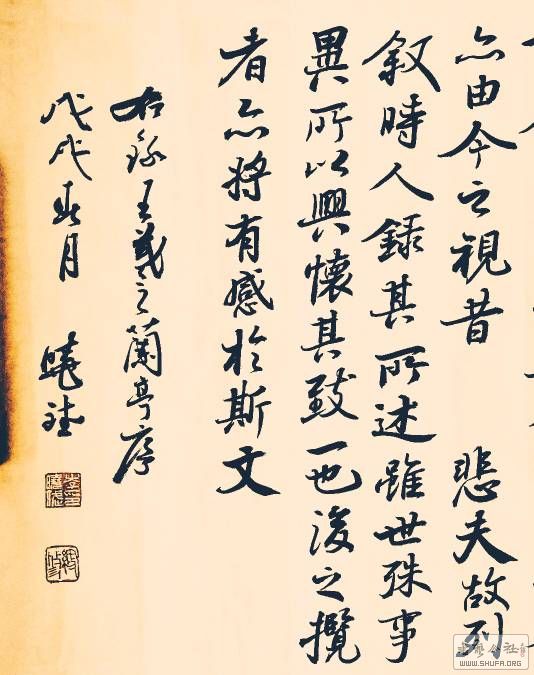 亦由今之視昔 悲夫故列
叙時人録其所述雖世殊事
異所以興懷其致一也後之攬
者亦將有感於斯文
右録王羲之蘭亭序
戊戌春月
WWW.SHUFA.ORG